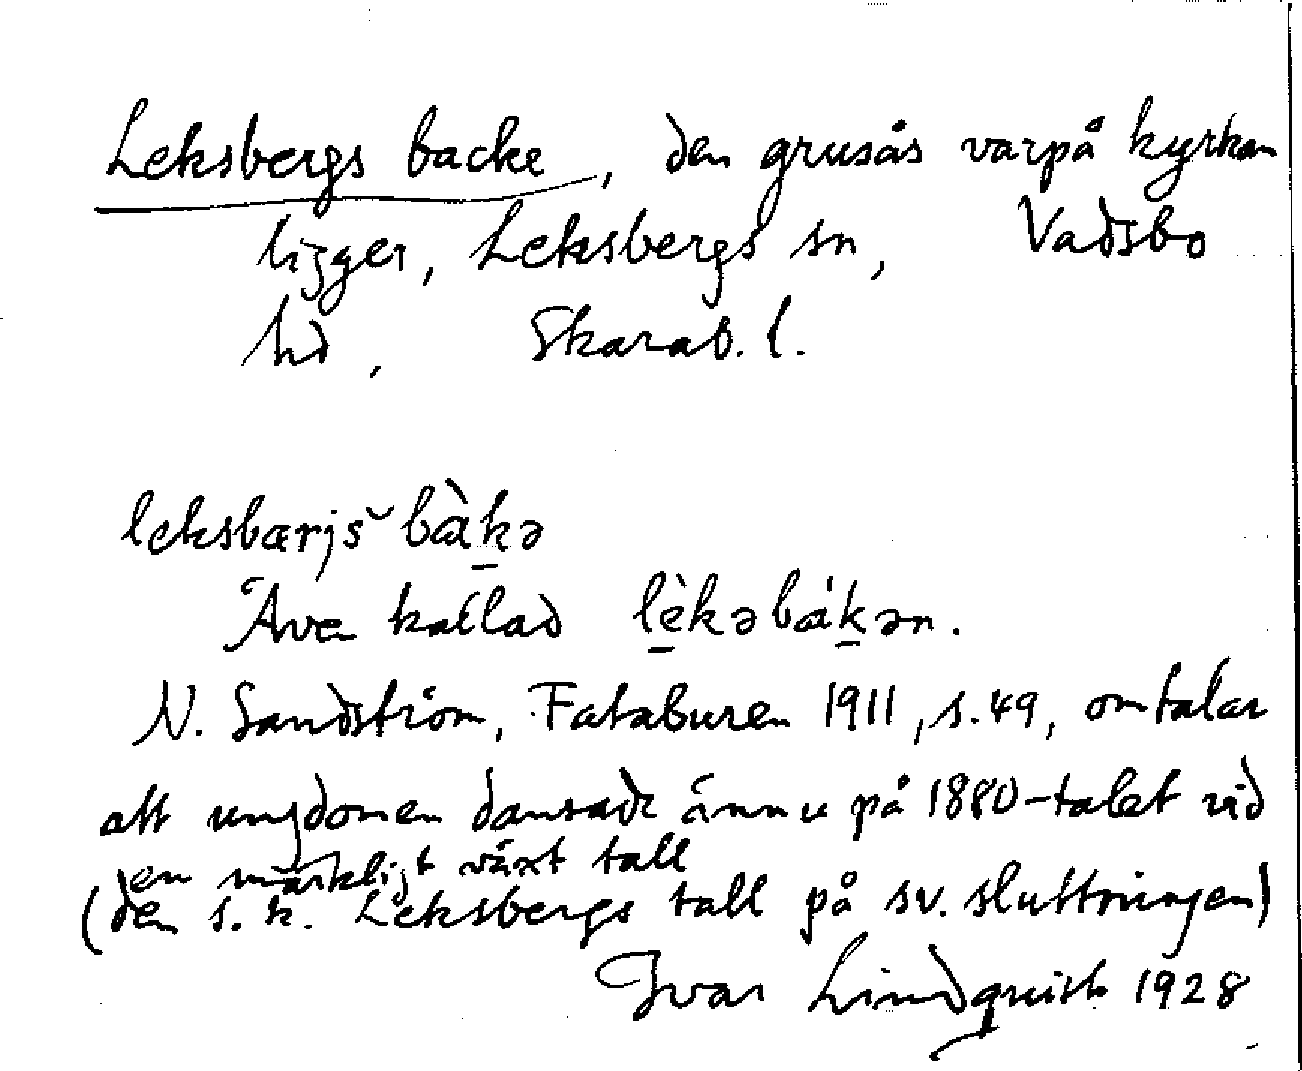 Leksbergs backe, den grusås varpå kyrkan
ligger, Leksbergs sn, Vadsbo
hd, Skarab. l.
leksbærjs˘bàk̠ə
Även kallad lè̠kəbák̠ən.
N. Sandström, Fataburen 1911, s. 49, omtalar
att ungdomen dansade ännu på 1880-talet vid
en märkligt växt tall
(den s.k. Leksbergs tall på sv. sluttningen)
Ivar Lindquist 1928